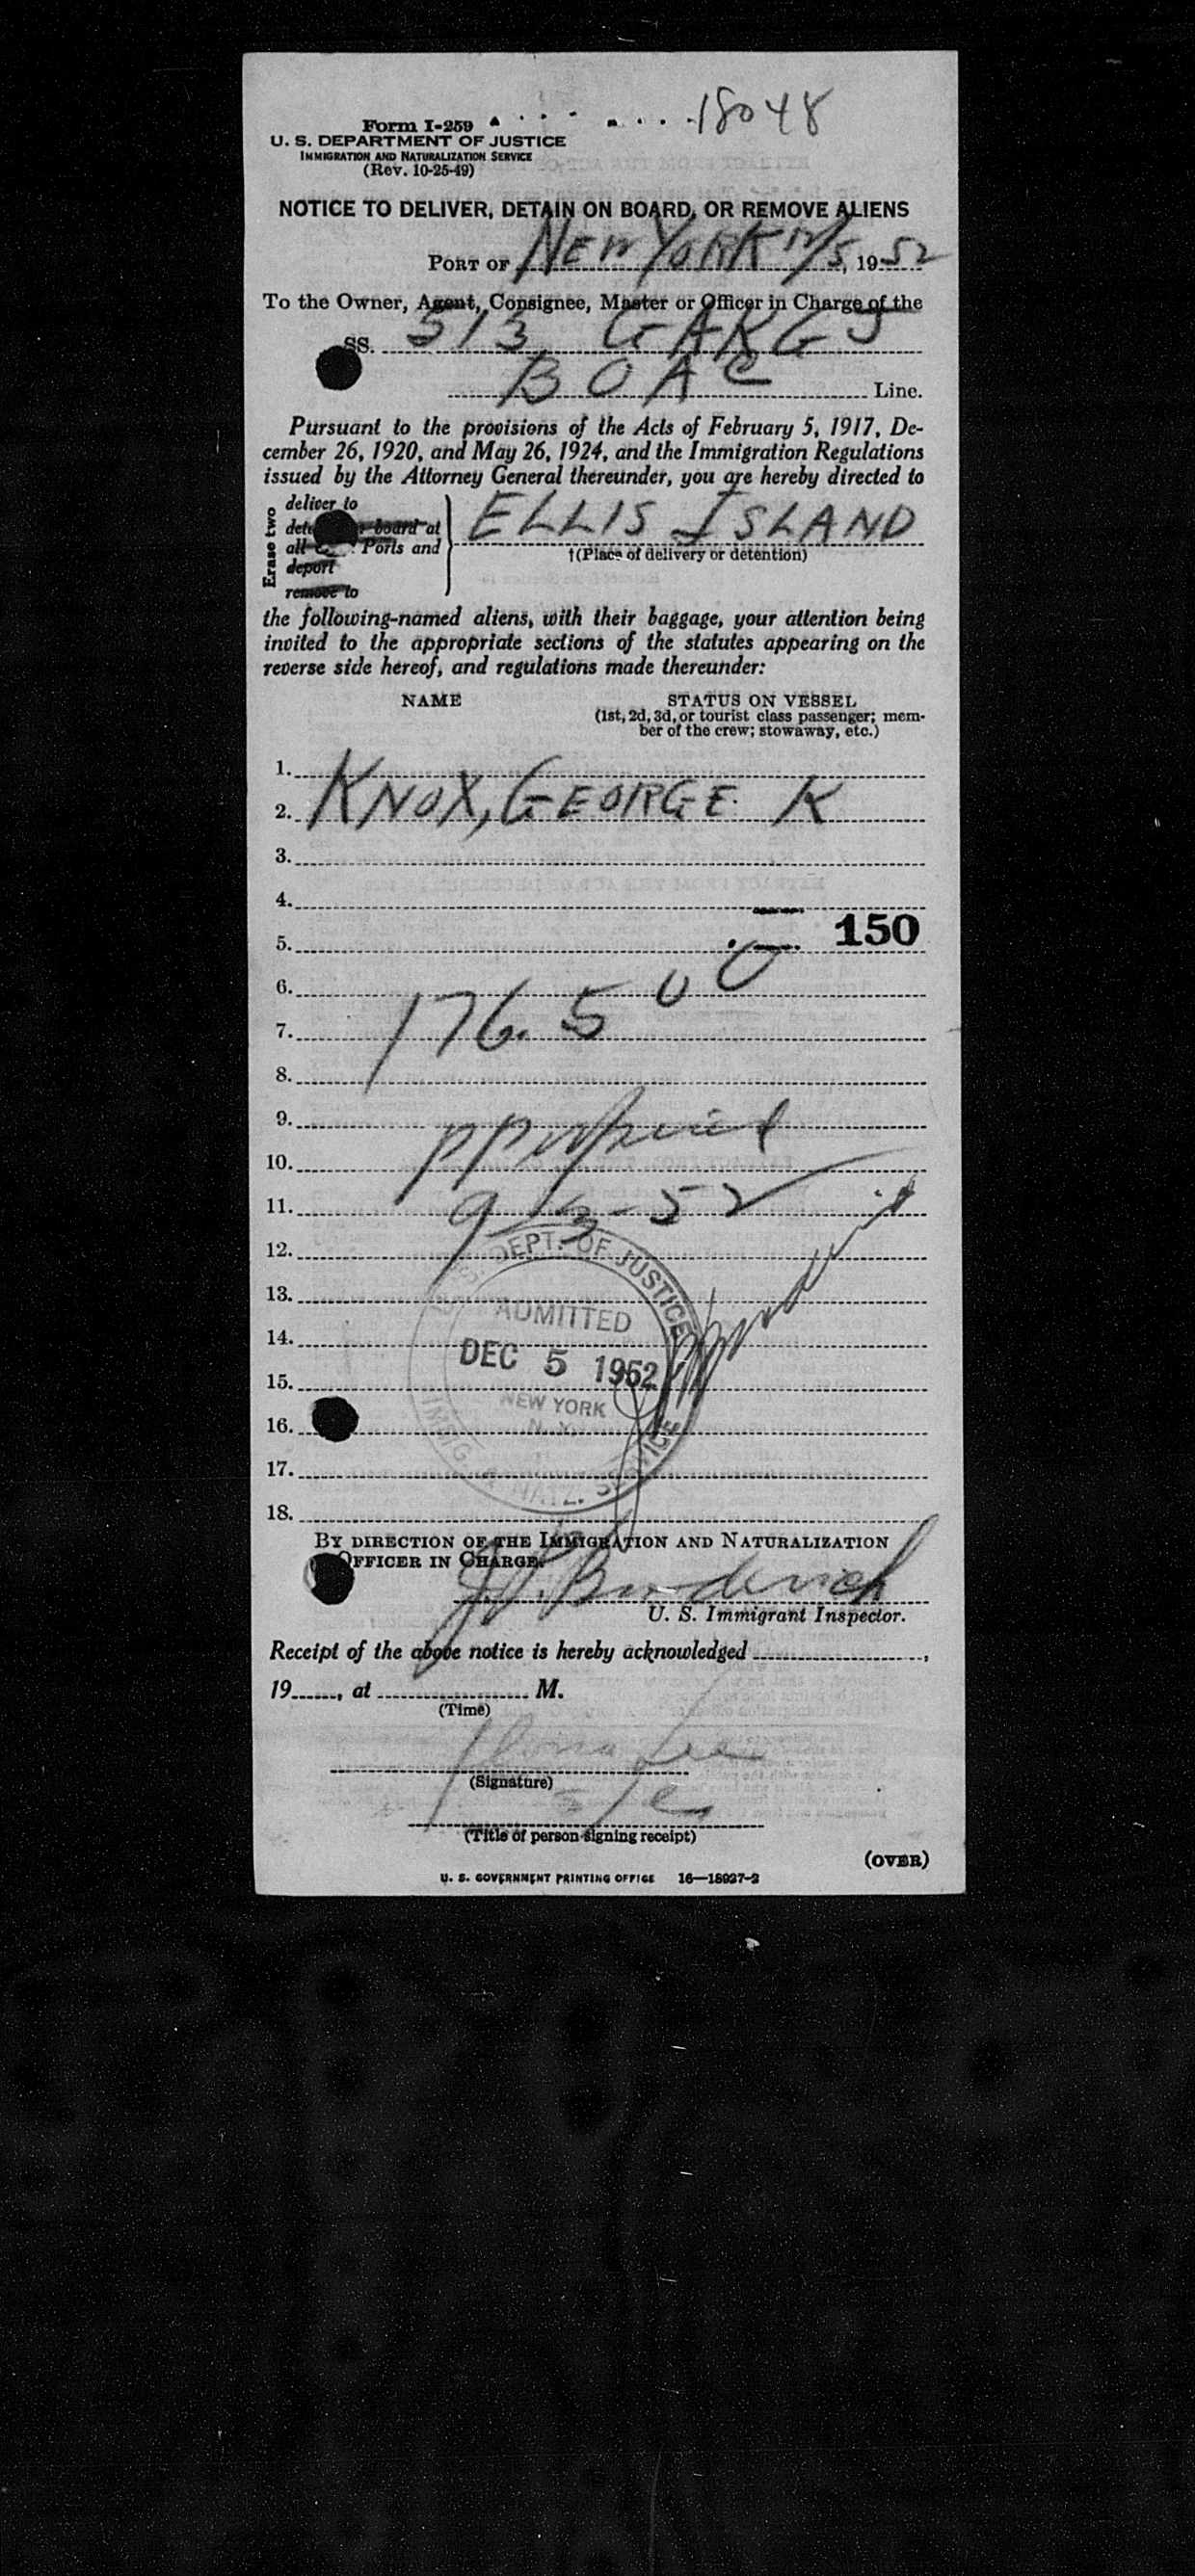 18048
Form I-259
U. S. DEPARTMENT OF JUSTICE
IMMIGRATION AND NATURALIZATION SERVICE
(Rev. 10-25-49)
NOTICE TO DELIVER, DETAIN ON BOARD, OR REMOVE ALIENS
PORT OF NEW YORK 12/5, 1952
To the Owner, Agent, Consignee, Master or Officer in Charge of the
SS. 513 GAKGJ
BOAC Line.
Pursuant to the provisions of the Acts of February 5, 1917, De-
cember 26, 1920, and May 26, 1924, and the Immigration Regulations
issued by the Attorney General thereunder, you are hereby directed to
Erase two
deliver to
board at
all Ports and
deport
remove to
ELLIS ISLAND
†(Place of delivery or detention)
the following-named aliens, with their baggage, your attention being
invited to the appropriate sections of the statutes appearing on the
reverse side hereof, and regulations made thereunder:
NAME STATUS ON VESSEL
(1st, 2d, 3d, or tourist class passenger; mem-
ber of the crew; stowaway, etc.)
1.
2. KNOX, GEORGE K
3.
4.
5. 150
6.
7. 176.5
8.
9.
10.
11. 9-13-52
12. DEPT. OF JUSTICE
13.
14. ADMITTED
DEC 5 1952
15.
NEW YORK
16. N. Y.
17. IMMIG. & NATZ. SERVICE
18.
BY DIRECTION OF THE IMMIGRATION AND NATURALIZATION
OFFICER IN CHARGE.
Broderick
U. S. Immigrant Inspector.
Receipt of the above notice is hereby acknowledged ,
19 , at M.
(Time)
Lee
(Signature)
(Title of person signing receipt)
(OVER)
U. S. GOVERNMENT PRINTING OFFICE 16—18927-2